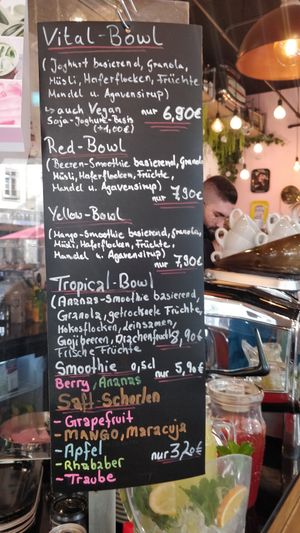 Vital-Bowl
(Joghurt basierend, Granola,
Müsli, Haferflocken, Früchte
Mandel u. Agavensirup)
↳ auch Vegan
Soja-Joghurt-Basis
(+1,00€)
nur 6,90€
Red-Bowl
(Beeren-Smoothie basierend, Granola
Müsli, Haferflocken, Früchte,
Mandel u. Agavensirup)
nur 7,90€
Yellow-Bowl
(Mango-Smoothie basierend, Granola,
Müsli, Haferflocken, Früchte,
Mandel u. Agavensirup)
nur 7,90€
Tropical-Bowl
(Ananas-Smoothie basierend,
Granola, getrocknete Früchte,
Kokosflocken, Leinsamen,
Gojibeeren, Drachenfrucht)
Frische Früchte 8,90€
Smoothie 0,5cl 5,90€
Berry, Ananas
Saft-Schorlen
- Grapefruit
- MANGO, Maracuja
- Apfel
- Rhababer
- Traube
nur 3,20€